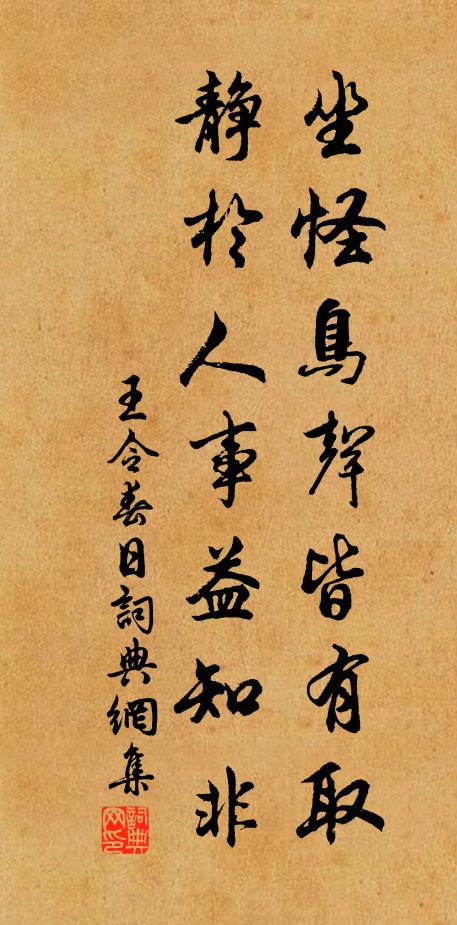 坐怪鳥聲皆有取
静於人事益知非
王令春日詞典網集
詞典網印